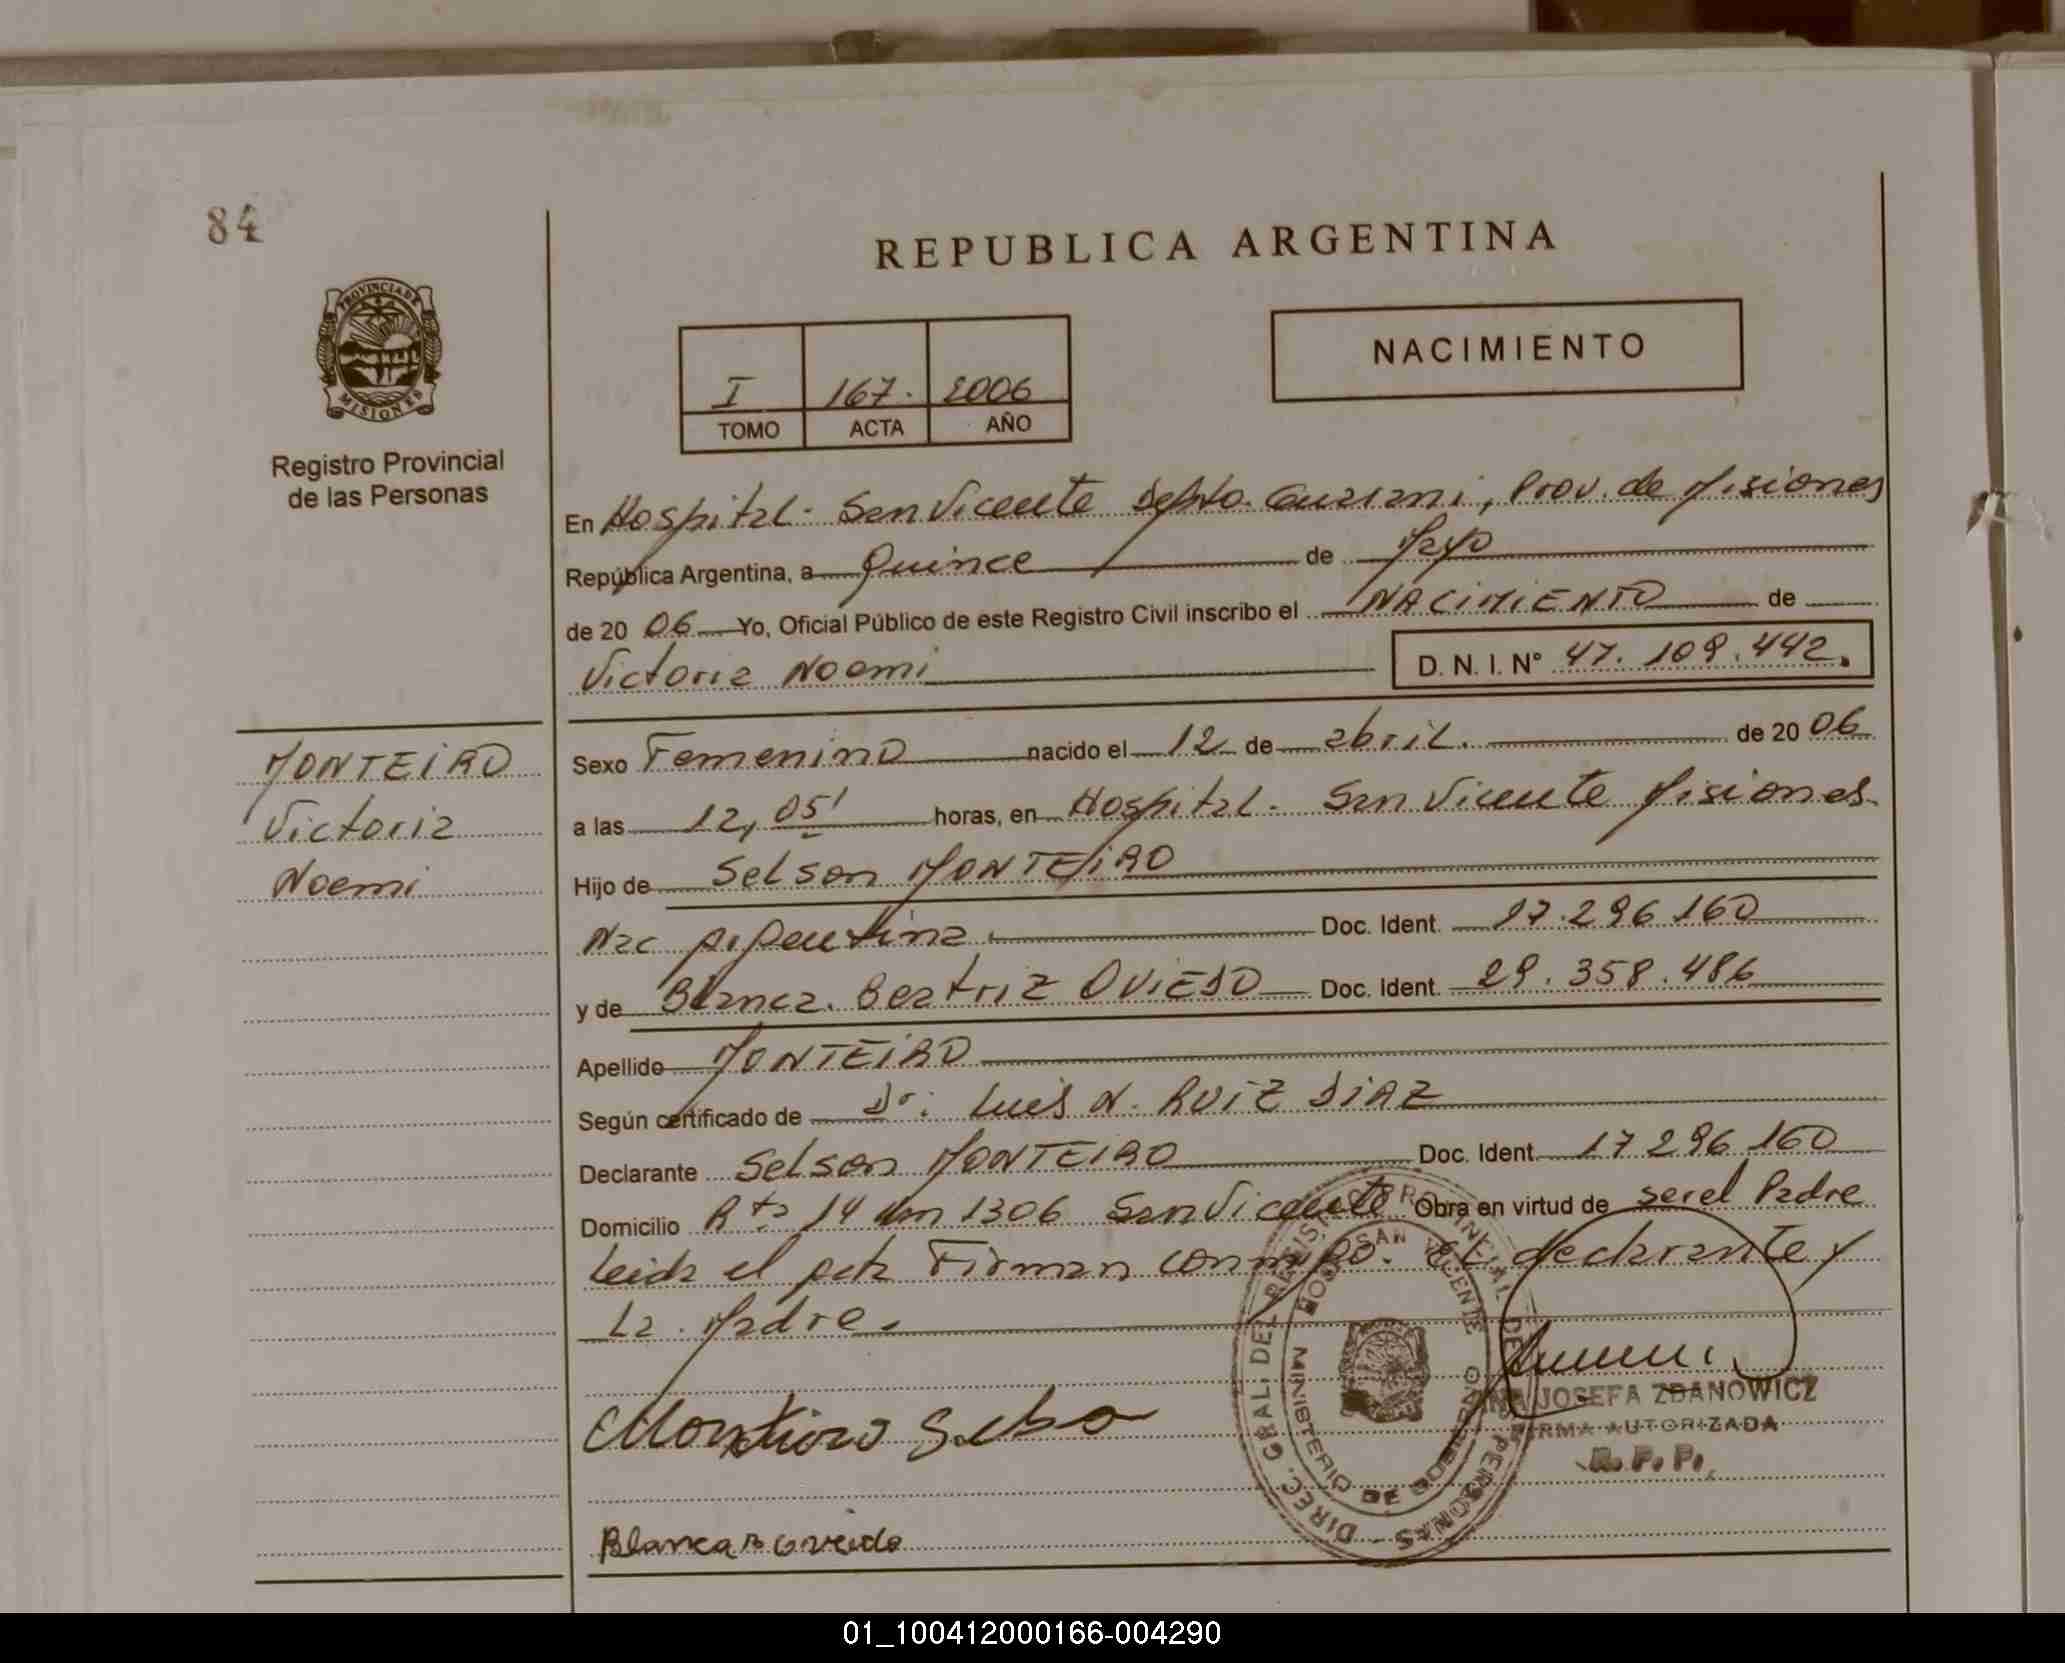 84
REPUBLICA ARGENTINA
PROVINCIA DE
MISIONES
Registro Provincial
de las Personas
I 167. 2006
TOMO ACTA AÑO
NACIMIENTO
En Hospital. San Vicente Depto. Guarani, Prov. de Misiones
República Argentina, a Quince de Mayo
de 20 06 Yo, Oficial Público de este Registro Civil inscribo el NACIMIENTO de
Victoria Noemi D. N. I. N° 47.109.442.
MONTEIRO
Victoria
Noemi
Sexo Femenino nacido el 12 de abril. de 20 06
a las 12,05' horas, en Hospital. San Vicente Misiones.
Hijo de Selson MONTEIRO
Nac Argentina. Doc. Ident. 17.296.160
y de Blanca. Beatriz OVIEDO Doc. Ident. 29.358.486
Apellido MONTEIRO
Según certificado de Dr. Luis N. RUIZ DIAZ
Declarante Selson MONTEIRO Doc. Ident. 17 296 160
Domicilio Rta 14 km 1306 San Vicente Obra en virtud de ser el Padre
Leida el Acta Firman conmigo. El declarante y
La. Madre.
DIREC. GRAL. DEL REGISTRO PROVINCIAL DE PERSONAS
SAN VICENTE
MINISTERIO DE GOBIERNO
JOSEFA ZDANOWICZ
FIRMA AUTORIZADA
R. P. P.
Blanca B Oviedo
01_100412000166-004290